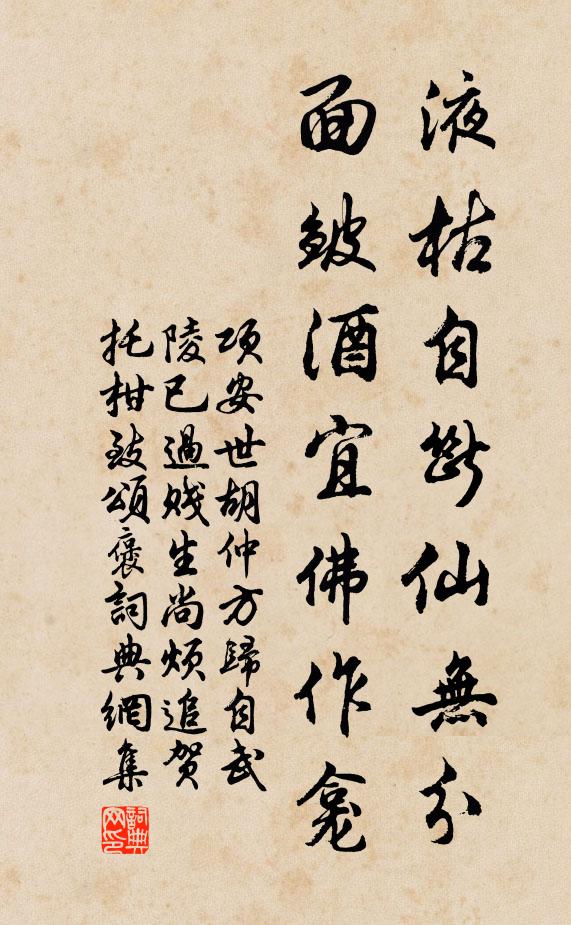 液枯自斷仙無分
面皺酒宜佛作龕
項安世胡仲方歸自武
陵已過賤生尚煩追賀
托柑致頌褒詞典網集
詞典网印